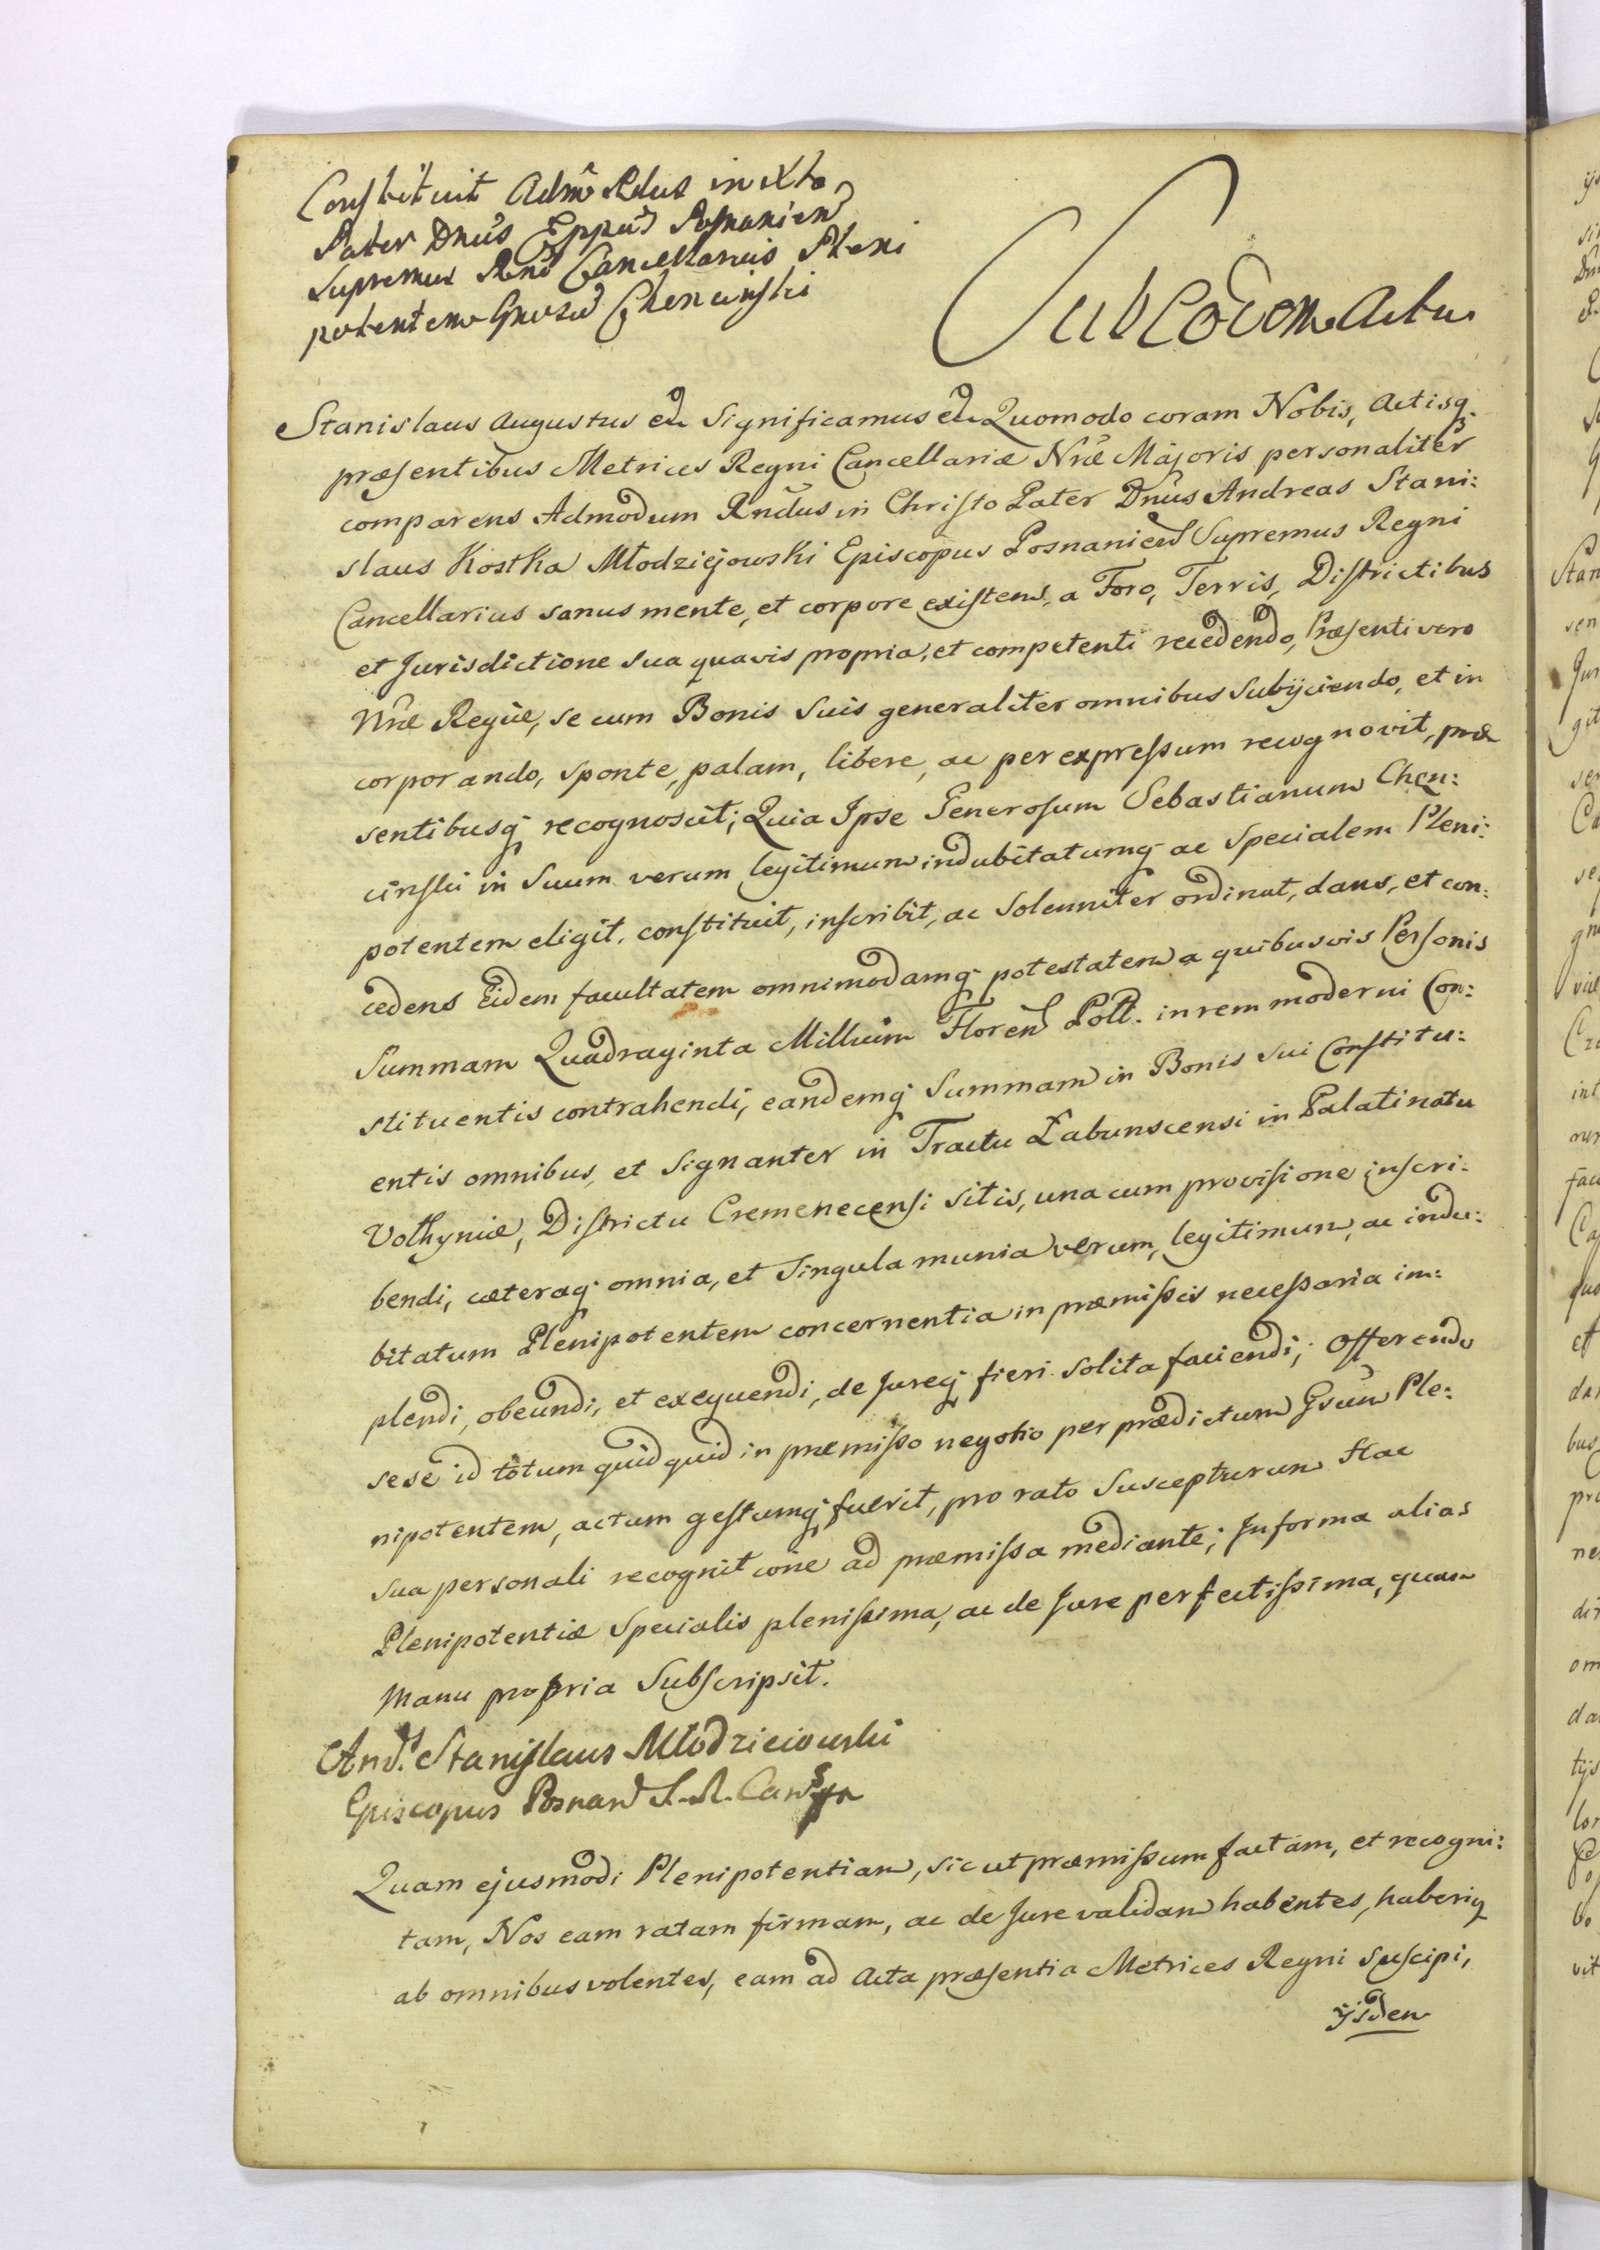 Constituit Adm̃ Rdus in Xto
Pater Dnus Eppus Posnanien
Supremus Rni Cancellarius Pleni
potentem Gnosũ Chencinski
Sub Eodem Actu
Stanislaus Augustus etc Significamus etc Quomodo coram Nobis, Actisq.
præsentibus Metrices Regni Cancellariæ Nræ Majoris personaliter
comparens Admodum Rndus in Christo Pater Dnus Andreas Stani:
slaus Kostka Młodziejowski Episcopus Posnanien Supremus Regni
Cancellarius sanus mente, et corpore existens, a Foro, Terris, Districtibus
et Jurisdictione sua quavis propria, et competenti recedendo, Præsenti vero
Nræ Regiæ, se cum Bonis suis generaliter omnibus subijciendo, et in
corporando, sponte, palam, libere, ac per expressum recognovit, præ
sentibusq recognoscit; Quia Ipse Generosum Sebastianum Chen:
cinski in Suum verum legitimum indubitatumq ac Specialem Pleni:
potentem eligit, constituit, inscribit, ac Solenniter ordinat, dans, et con:
cedens Eidem facultatem omnimodamq potestatem a quibusvis Personis
Summam Quadraginta Millium Floren Poll. in rem moderni Con:
stituentis contrahendi, eandemq Summam in Bonis sui Constitu:
entis omnibus, et signanter in Tractu Łabunscensi in Palatinatu
Volhyniæ, Districtu Cremenecensi sitis, una cum provisione inscri:
bendi, cæteraq omnia, et singula munia verum, legitimum, ac indu:
bitatum Plenipotentem concernentia in præmissis necessaria im:
plendi, obeundi, et exequendi, de Jureq fieri solita faciendi; Offerendo
sese id totum quidquid in præmisso negotio per prædictum Gsum Ple:
nipotentem, actum gestumq fuerit, pro rato Suscepturum Hac
sua personali recognitione ad præmissa mediante; Informa alias
Plenipotentiæ Specialis plenissima, ac de Jure perfectissima, quam
Manu propria Subscripsit.
And. Stanislaus Młodzieiowski
Episcopus Posnan S. R. Canc
Quam ejusmodi Plenipotentiam, sic ut præmissum factam, et recogni:
tam, Nos eam ratam firmam, ac de Jure validam habentes, haberiq
ab omnibus volentes, eam ad Acta præsentia Metrices Regni Suscipi,
ijsdem